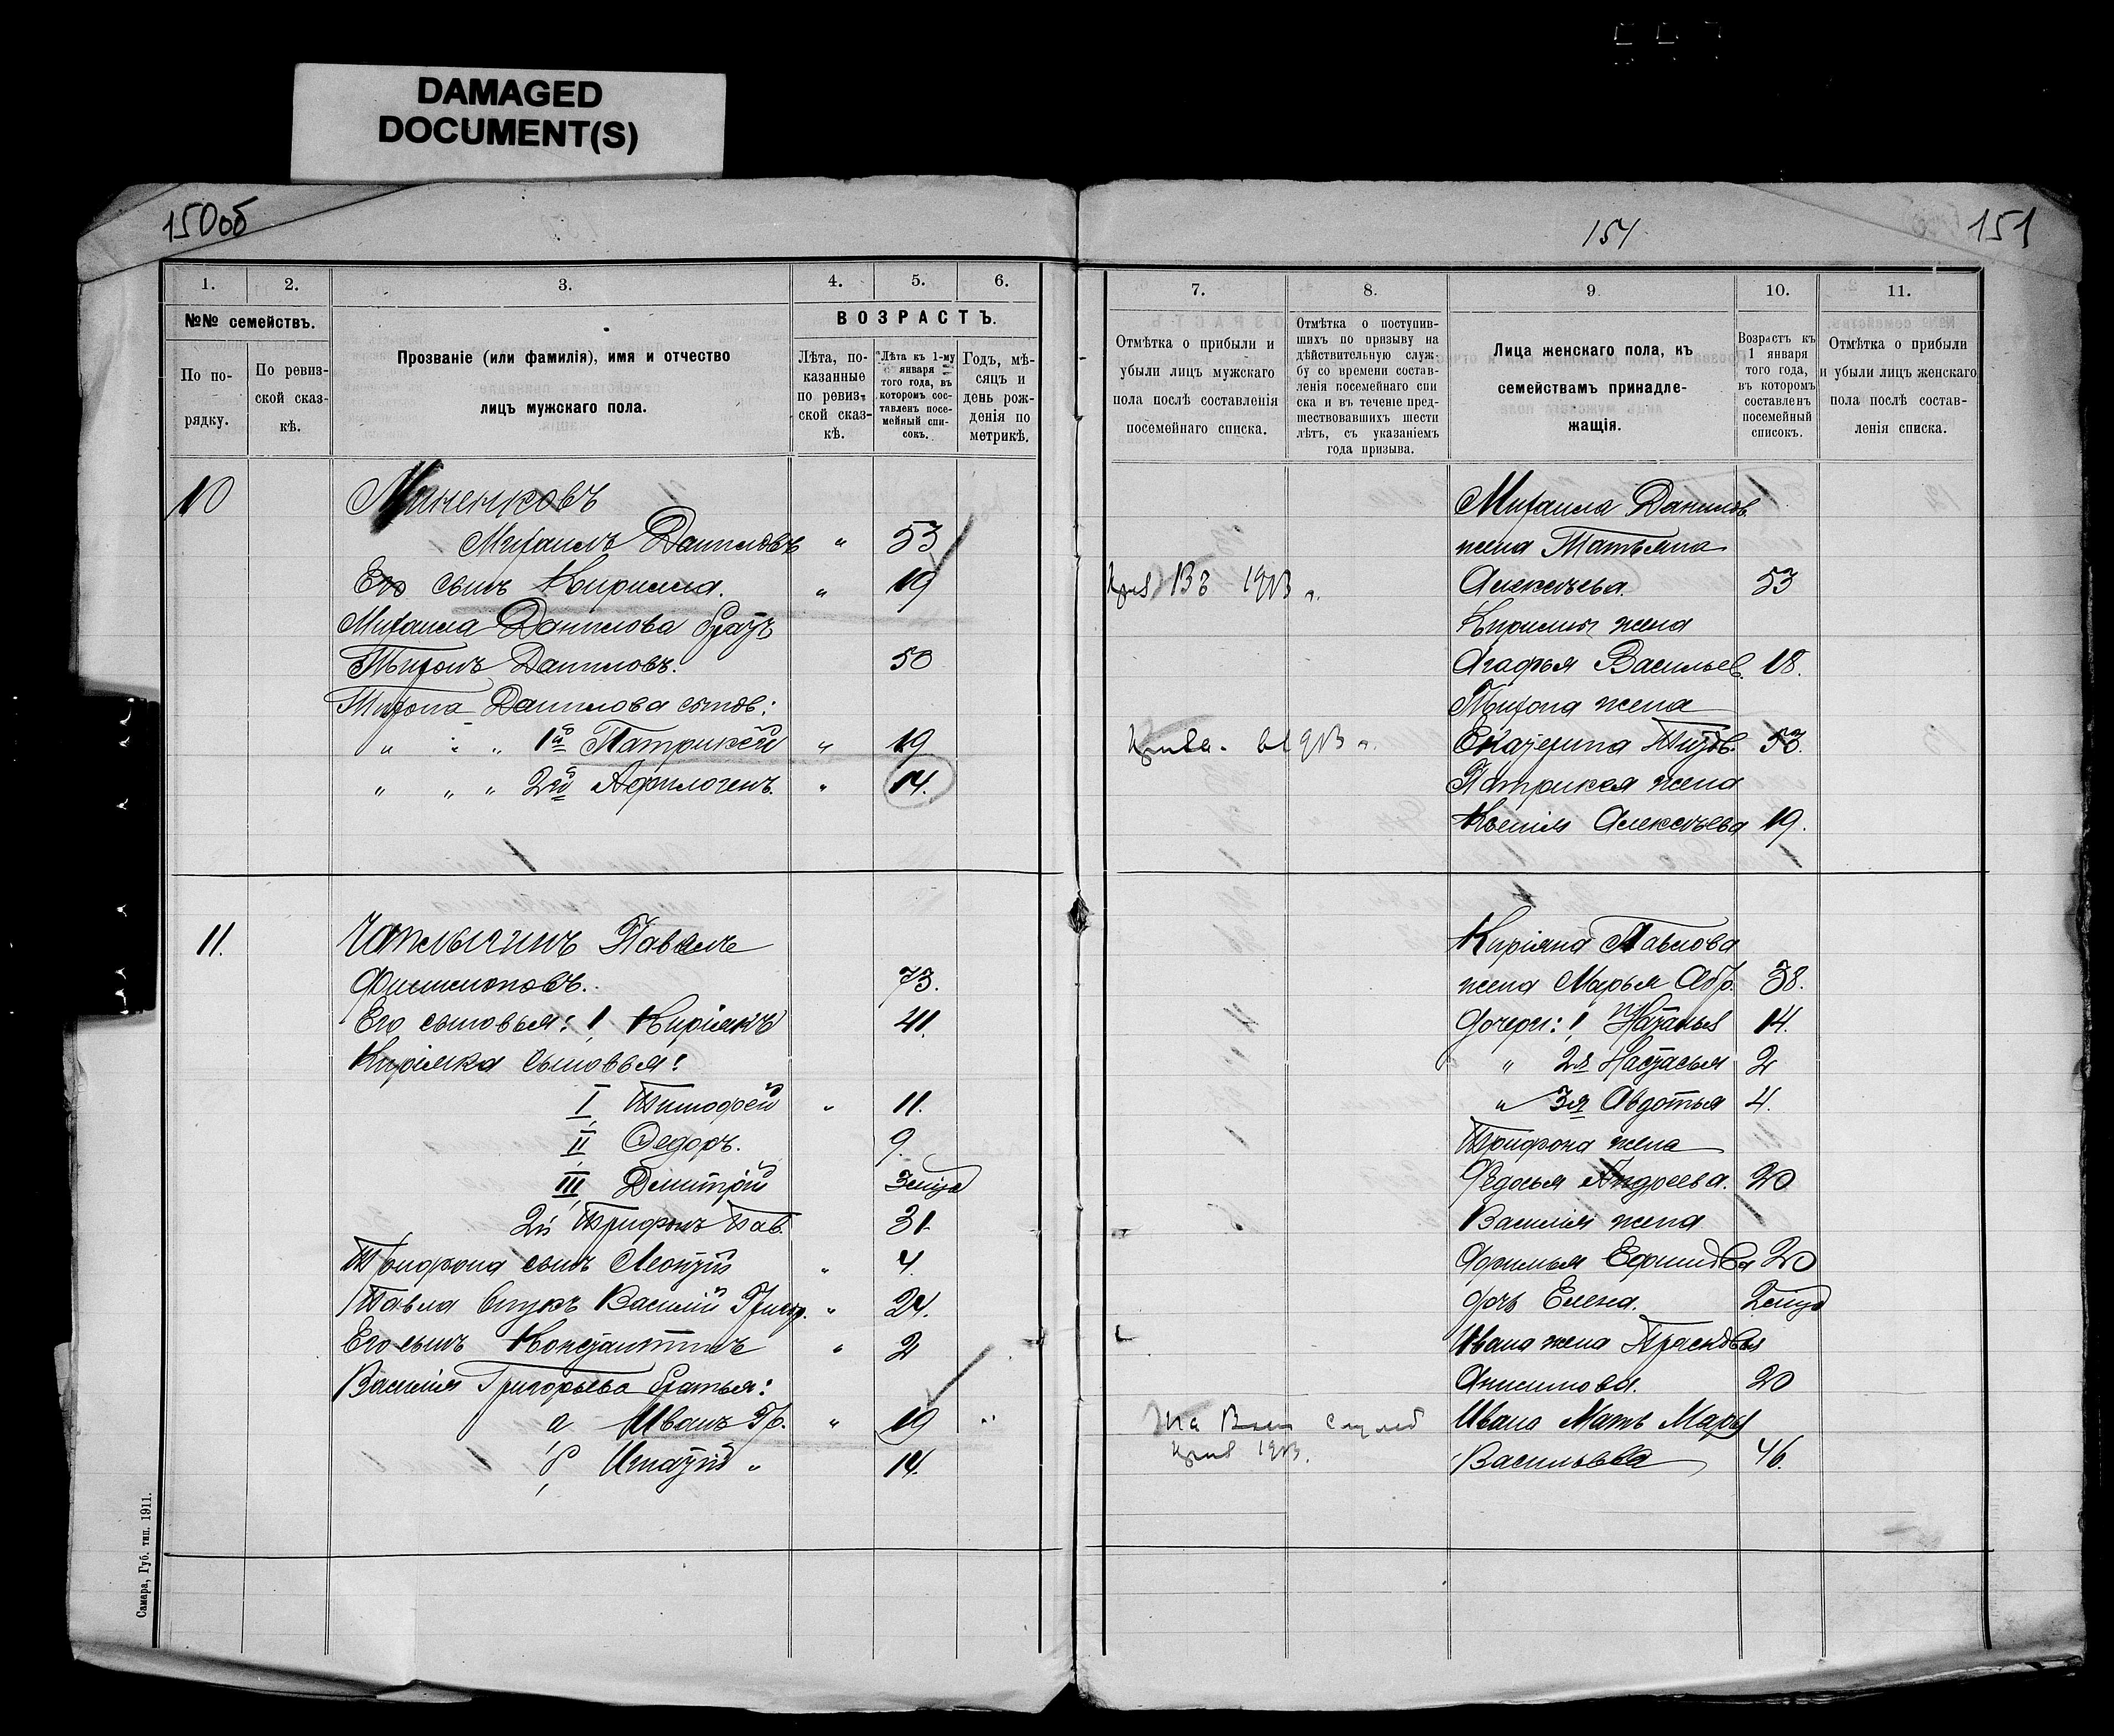 DAMAGED
DOCUMENT(S)
150об
1.
2.
3.
4.
5.
6.
№№ семействъ.
По по-
рядку.
По ревиз-
ской сказ-
кѣ.
Прозваніе (или фамилія), имя и отчество
лицъ мужскаго пола.
ВОЗРАСТЪ.
Лѣта, по-
казанные
по ревиз-
ской сказ-
кѣ.
Лѣта къ 1-му
января
того года, въ
которомъ сос-
тавленъ посе-
мейный спи-
сокъ.
Годъ, мѣ-
сяцъ и
день рож-
денія по
метрикѣ.
10
Миненковъ
Михаилъ Даниловъ " 53
Его сынъ Кирилла. " 19
Михаила Данилова братъ
Тихонъ Даниловъ. 50
Тихона Данилова сынов:
" " " 1й Патрикей " 19
" " " 2й Афилогенъ. " 14.
11.
Чаплыгинъ Павелъ
Филимоновъ. 73.
Его сыновья: 1, Киріякъ 41.
Киріяка сыновья:
I, Тимофей " 11.
II, Федоръ. 9.
III, Дмитрій 3 мѣся
2й Трифонъ Пав. 31.
Трифона сынъ Леонтій " 4.
Павла внукъ Василій Григор. " 24.
Его сынъ Константинъ " 2
Василія Григорьева братья:
а, Иванъ Гр. " 19 "
б, Игнатій " 14.
Самара, Губ. тип. 1911.
154
151
7.
8.
9.
10.
11.
Отмѣтка о прибыли и
убыли лицъ мужскаго
пола послѣ составленія
посемейнаго списка.
Отмѣтка о поступив-
шихъ по призыву на
дѣйствительную служ-
бу со времени состав-
ленія посемейнаго спи
ска и въ теченіе пред-
шествовавшихъ шести
лѣтъ, съ указаніемъ
года призыва.
Лица женскаго пола, къ
семействамъ принадле-
жащія.
Возрастъ къ
1 января
того года,
въ которомъ
составленъ
посемейный
списокъ.
Отмѣтка о прибыли
и убыли лицъ женскаго
пола послѣ состав-
ленія списка.
Михаила Данилов.
жена Татьяна
1913 г. Алексѣева. 53
Кирилы жена
Агафья Васильев. 18.
Тихона жена
1913 г. Екатерина Титов. 53.
Патрикея жена
Ксенія Алексѣева 19.
Киріяка Павлова
жена Марья Абр. 38.
дочери: 1, Наталья 14.
" 2я Настасья 2
" 3я Авдотья 4.
Трифона жена
Федосья Андреева. 20
Василія жена
Афимья Ефимова 20
дочь Елена.
Ивана жена Прасковья
Анисимова. 20
Ивана Мать Марья
1913. Васильева 46.